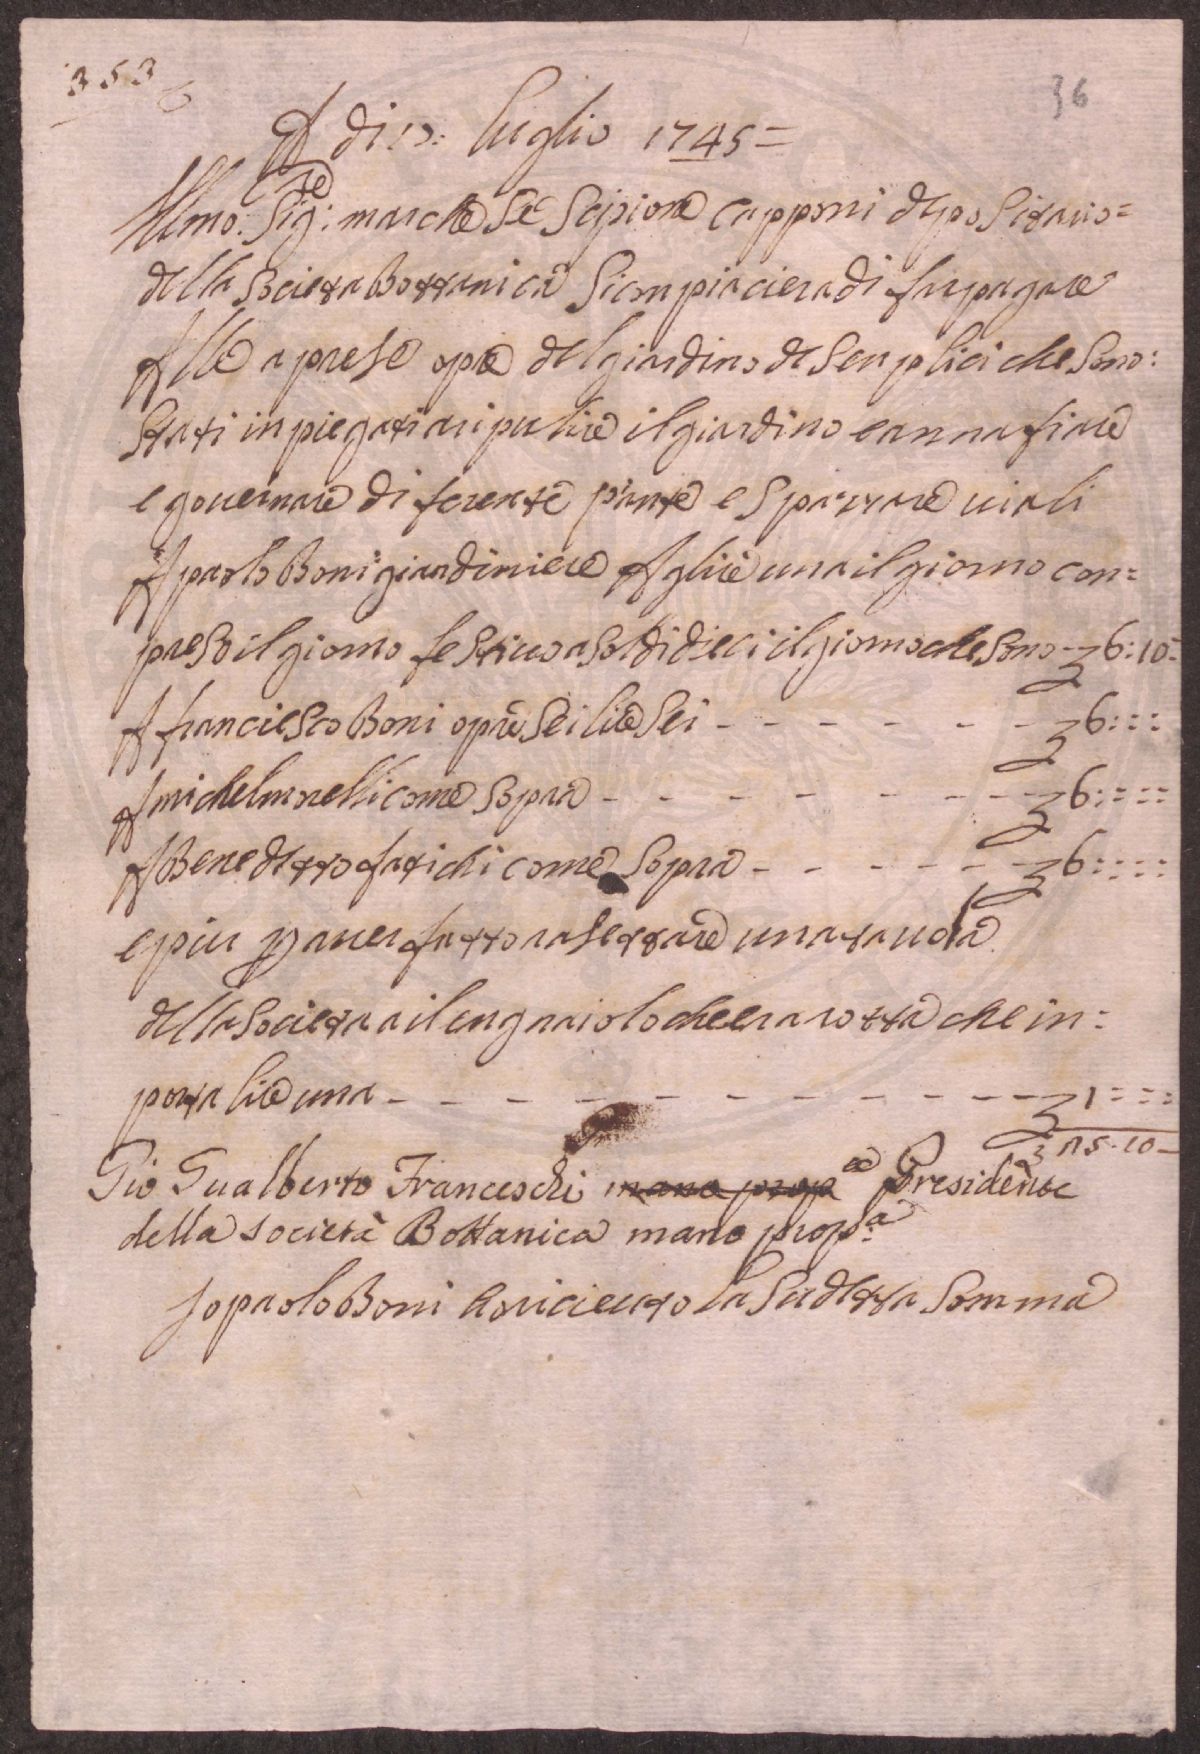 353
36
A di 10: luglio 1745=
Illmo: Sig:re marchese Scipione capponi depositario=
della Societa Bottanica Si conpiaciera di far pagare
Alle aprese opre del giardino de Senplici che Sono:
Stati inpiegati a ripulire il giardino e annafiare
e governare diferente piante e Spazzare viali
A paolo Boni giardiniere A lire una il giorno con=
preso il giorno festivo a Soldi dieci il giorno che Sono 6:10=
A franciesco Boni opre Sei lire Sei - - - - - - 6:::
A michel morelli come Sopra - - - - - - - - 6::::
A Benedetto fatichi come Sopra - - - - - - 6::::
e piu p aver fatto rasettare una tavola
della Societa a il legnaiolo che era rotta che in=
porta lire una - - - - - - - - - - - 1:::
15.10-
Gio Gualberto Franceschi mano prop Presidente
della società Bottanica mano prop.a
Io paolo Boni ho riciecuto la Sudetta Somma